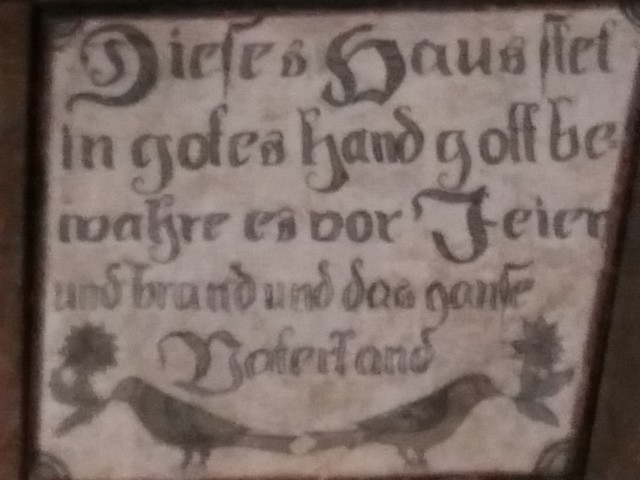 Dieses Haus stet
in gotes hand gott be-
wahre es vor Feier
und brand und das ganse
Vaterland